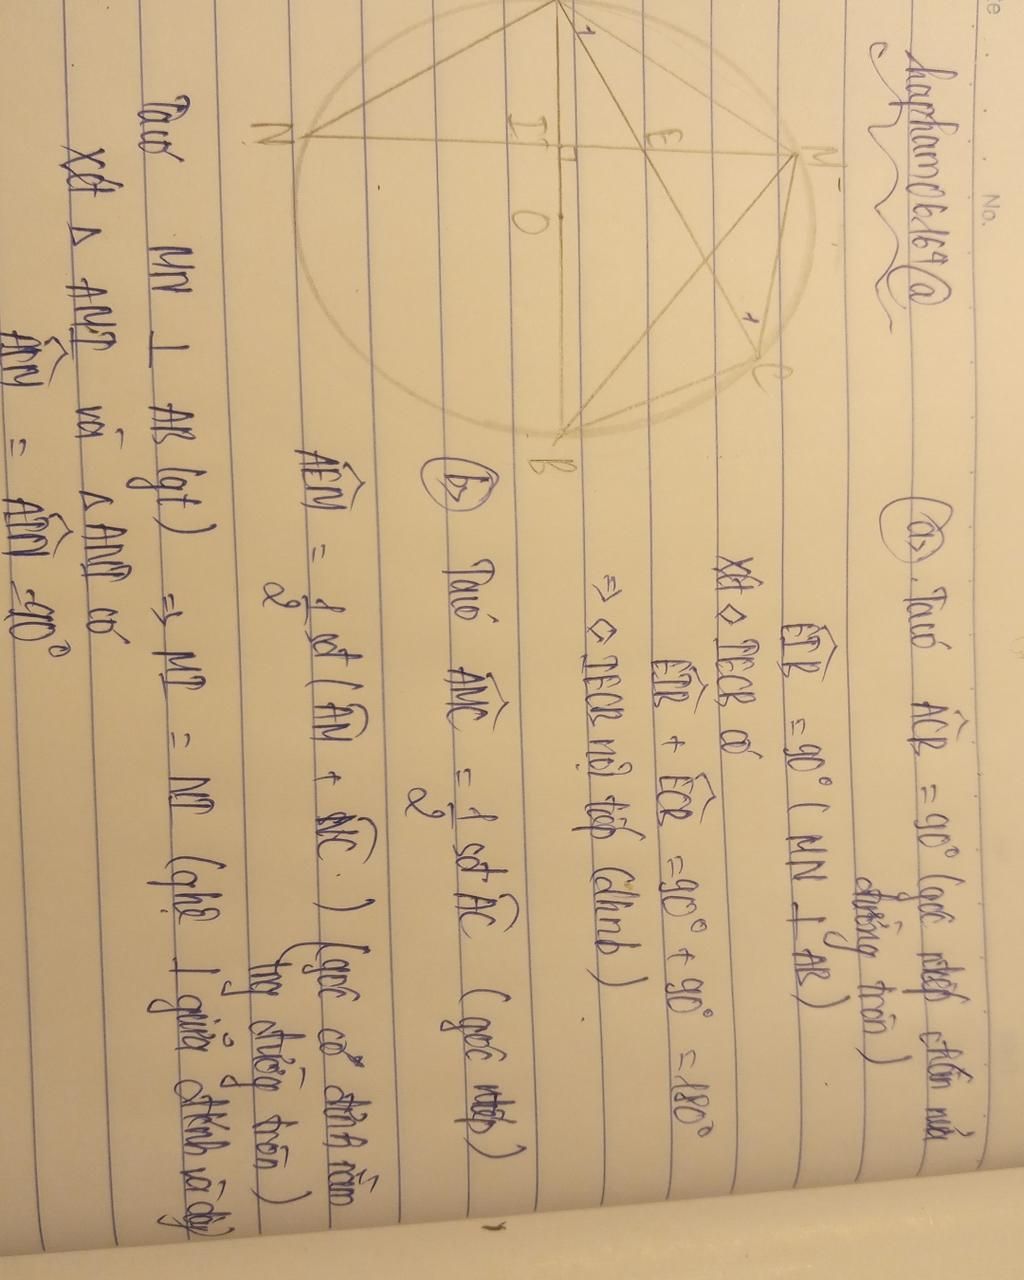 No.
hapham06169a
M
E
C
I
O
N
B
a>. Ta có ACB = 90° (góc ntiếp chắn nửa
đường tròn)
EIB = 90° (MN ⊥ AB)
Xét ◇ IECB có
EIB + ECB = 90° + 90° = 180°
=> ◇ IECB nội tiếp (dhnb)
b> Ta có AMC = 1/2 sđ AC (góc ntiếp)
AEN = 1/2 sđ (AN + MC) (góc có đỉnh nằm
trg đường tròn)
Ta có MN ⊥ AB (gt) => MI = NI (qhệ ⊥ giữa đkính và dây
Xét Δ AMI và Δ ANI có
AIM = AIN = 90°